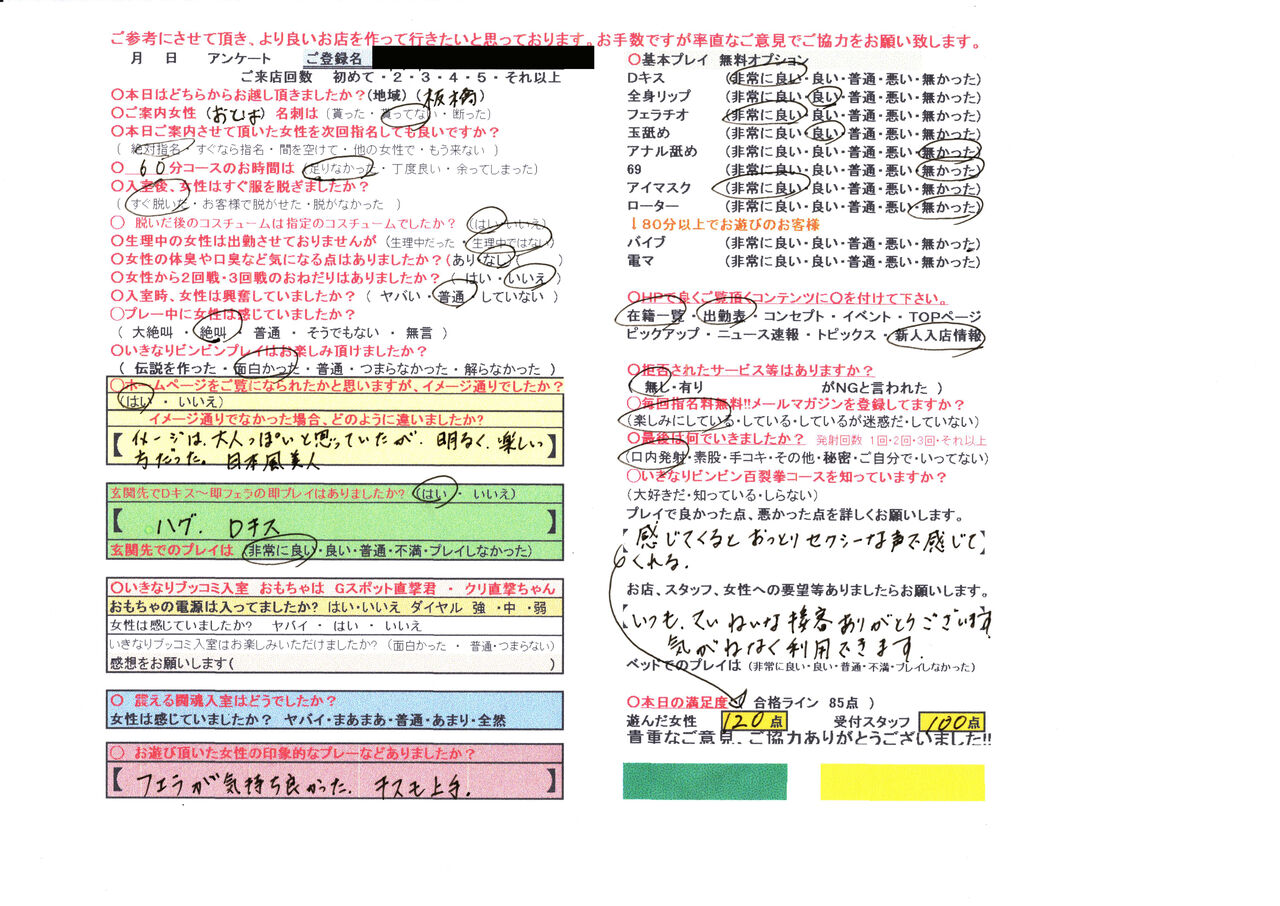 ご参考にさせて頂き、より良いお店を作って行きたいと思っております。お手数ですが率直なご意見でご協力をお願い致します。
月 日 アンケート ご登録名
ご来店回数 初めて・2・3・4・5・それ以上
〇本日はどちらからお越し頂きましたか?(地域) (板橋)
〇ご案内女性 (おとは) 名刺は (貰った・貰ってない・断った)
〇本日ご案内させて頂いた女性を次回指名しても良いですか?
( 絶対指名・すぐなら指名・間を空けて・他の女性で・もう来ない )
〇 60分コースのお時間は (足りなかった・丁度良い・余ってしまった)
〇入室後、女性はすぐ服を脱ぎましたか?
( すぐ脱いだ・お客様で脱がせた・脱がなかった )
〇 脱いだ後のコスチュームは指定のコスチュームでしたか? (はい・いいえ)
〇生理中の女性は出勤させておりませんが (生理中だった・生理中ではない)
〇女性の体臭や口臭など気になる点はありましたか?(あり・なし)( )
〇女性から2回戦・3回戦のおねだりはありましたか? ( はい・いいえ )
〇入室時、女性は興奮していましたか? ( ヤバい・普通・していない )
〇プレー中に女性は感じていましたか?
( 大絶叫・絶叫・普通・そうでもない・無言 )
〇いきなりビンビンプレイはお楽しみ頂けましたか?
( 伝説を作った・面白かった・普通・つまらなかった・解らなかった )
〇ホームページをご覧になられたかと思いますが、イメージ通りでしたか?
(はい・いいえ)
イメージ通りでなかった場合、どのように違いましたか?
【イメージは、大人っぽいと思っていたが、明るく、楽しい
方だった。日本風美人 】
玄関先でDキス～即フェラの即プレイはありましたか? (はい ・ いいえ)
【 ハグ. Dキス 】
玄関先でのプレイは (非常に良い・良い・普通・不満・プレイしなかった)
〇いきなりブッコミ入室 おもちゃは Gスポット直撃君 ・ クリ直撃ちゃん
おもちゃの電源は入ってましたか? はい・いいえ ダイヤル 強 ・中 ・弱
女性は感じていましたか? ヤバイ・ はい ・ いいえ
いきなりブッコミ入室はお楽しみいただけましたか? (面白かった ・ 普通・つまらない)
感想をお願いします( )
〇 震える闘魂入室はどうでしたか?
女性は感じていましたか? ヤバイ・まあまあ・普通・あまり・全然
〇 お遊び頂いた女性の印象的なプレーなどありましたか?
【 フェラが気持ち良かった. キスも上手. 】
〇基本プレイ 無料オプション
Dキス (非常に良い・良い・普通・悪い・無かった)
全身リップ (非常に良い・良い・普通・悪い・無かった)
フェラチオ (非常に良い・良い・普通・悪い・無かった)
玉舐め (非常に良い・良い・普通・悪い・無かった)
アナル舐め (非常に良い・良い・普通・悪い・無かった)
69 (非常に良い・良い・普通・悪い・無かった)
アイマスク (非常に良い・良い・普通・悪い・無かった)
ローター (非常に良い・良い・普通・悪い・無かった)
↓80分以上でお遊びのお客様
バイブ (非常に良い・良い・普通・悪い・無かった)
電マ (非常に良い・良い・普通・悪い・無かった)
〇HPで良くご覧頂くコンテンツに〇を付けて下さい。
在籍一覧・出勤表・コンセプト・イベント・TOPページ
ピックアップ・ニュース速報・トピックス・新人入店情報
〇拒否されたサービス等はありますか?
( 無し・有り がNGと言われた )
〇毎回指名料無料!!メールマガジンを登録してますか?
(楽しみにしている・している・しているが迷惑だ・していない)
〇最後は何でいきましたか? 発射回数 1回・2回・3回・それ以上
(口内発射・素股・手コキ・その他・秘密・ご自分で・いってない)
〇いきなりビンビン百裂拳コースを知っていますか?
(大好きだ・知っている・しらない)
プレイで良かった点、悪かった点を詳しくお願いします。
【感じてくるとおっとりセクシーな声で感じて
くれる. 】
お店、スタッフ、女性への要望等ありましたらお願いします。
【いつも、ていねいな接客ありがとうございます.
気がねなく利用できます. 】
ベッドでのプレイは (非常に良い・良い・普通・不満・プレイしなかった)
〇本日の満足度( 合格ライン 85点 )
遊んだ女性 120点 受付スタッフ 100点
貴重なご意見、ご協力ありがとうございました!!